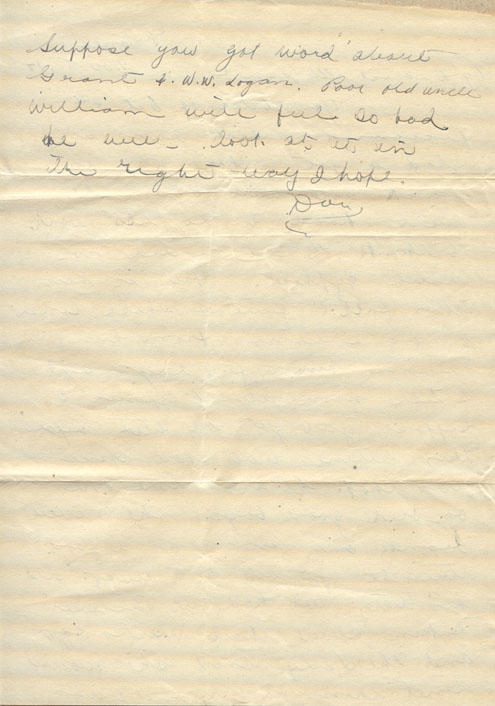 Suppose you got word about
Grant & W.W. Logan. Poor old uncle
William will feel so bad
he will - look at it in
The right way I hope.
Don